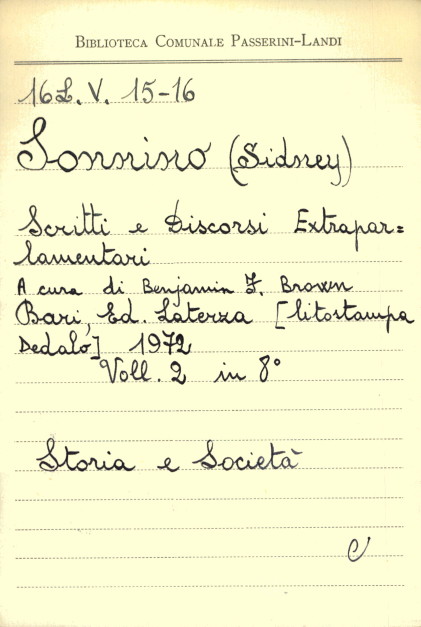 BIBLIOTECA COMUNALE PASSERINI-LANDI
16L. V. 15-16
Sonnino (Sidney)
Scritti e Discorsi Extrapar=
lamentari
A cura di Benjamin F. Brown
Bari, Ed. Laterza [litostampa
Dedalo] 1972
Voll. 2 in 8°
Storia e Società
C